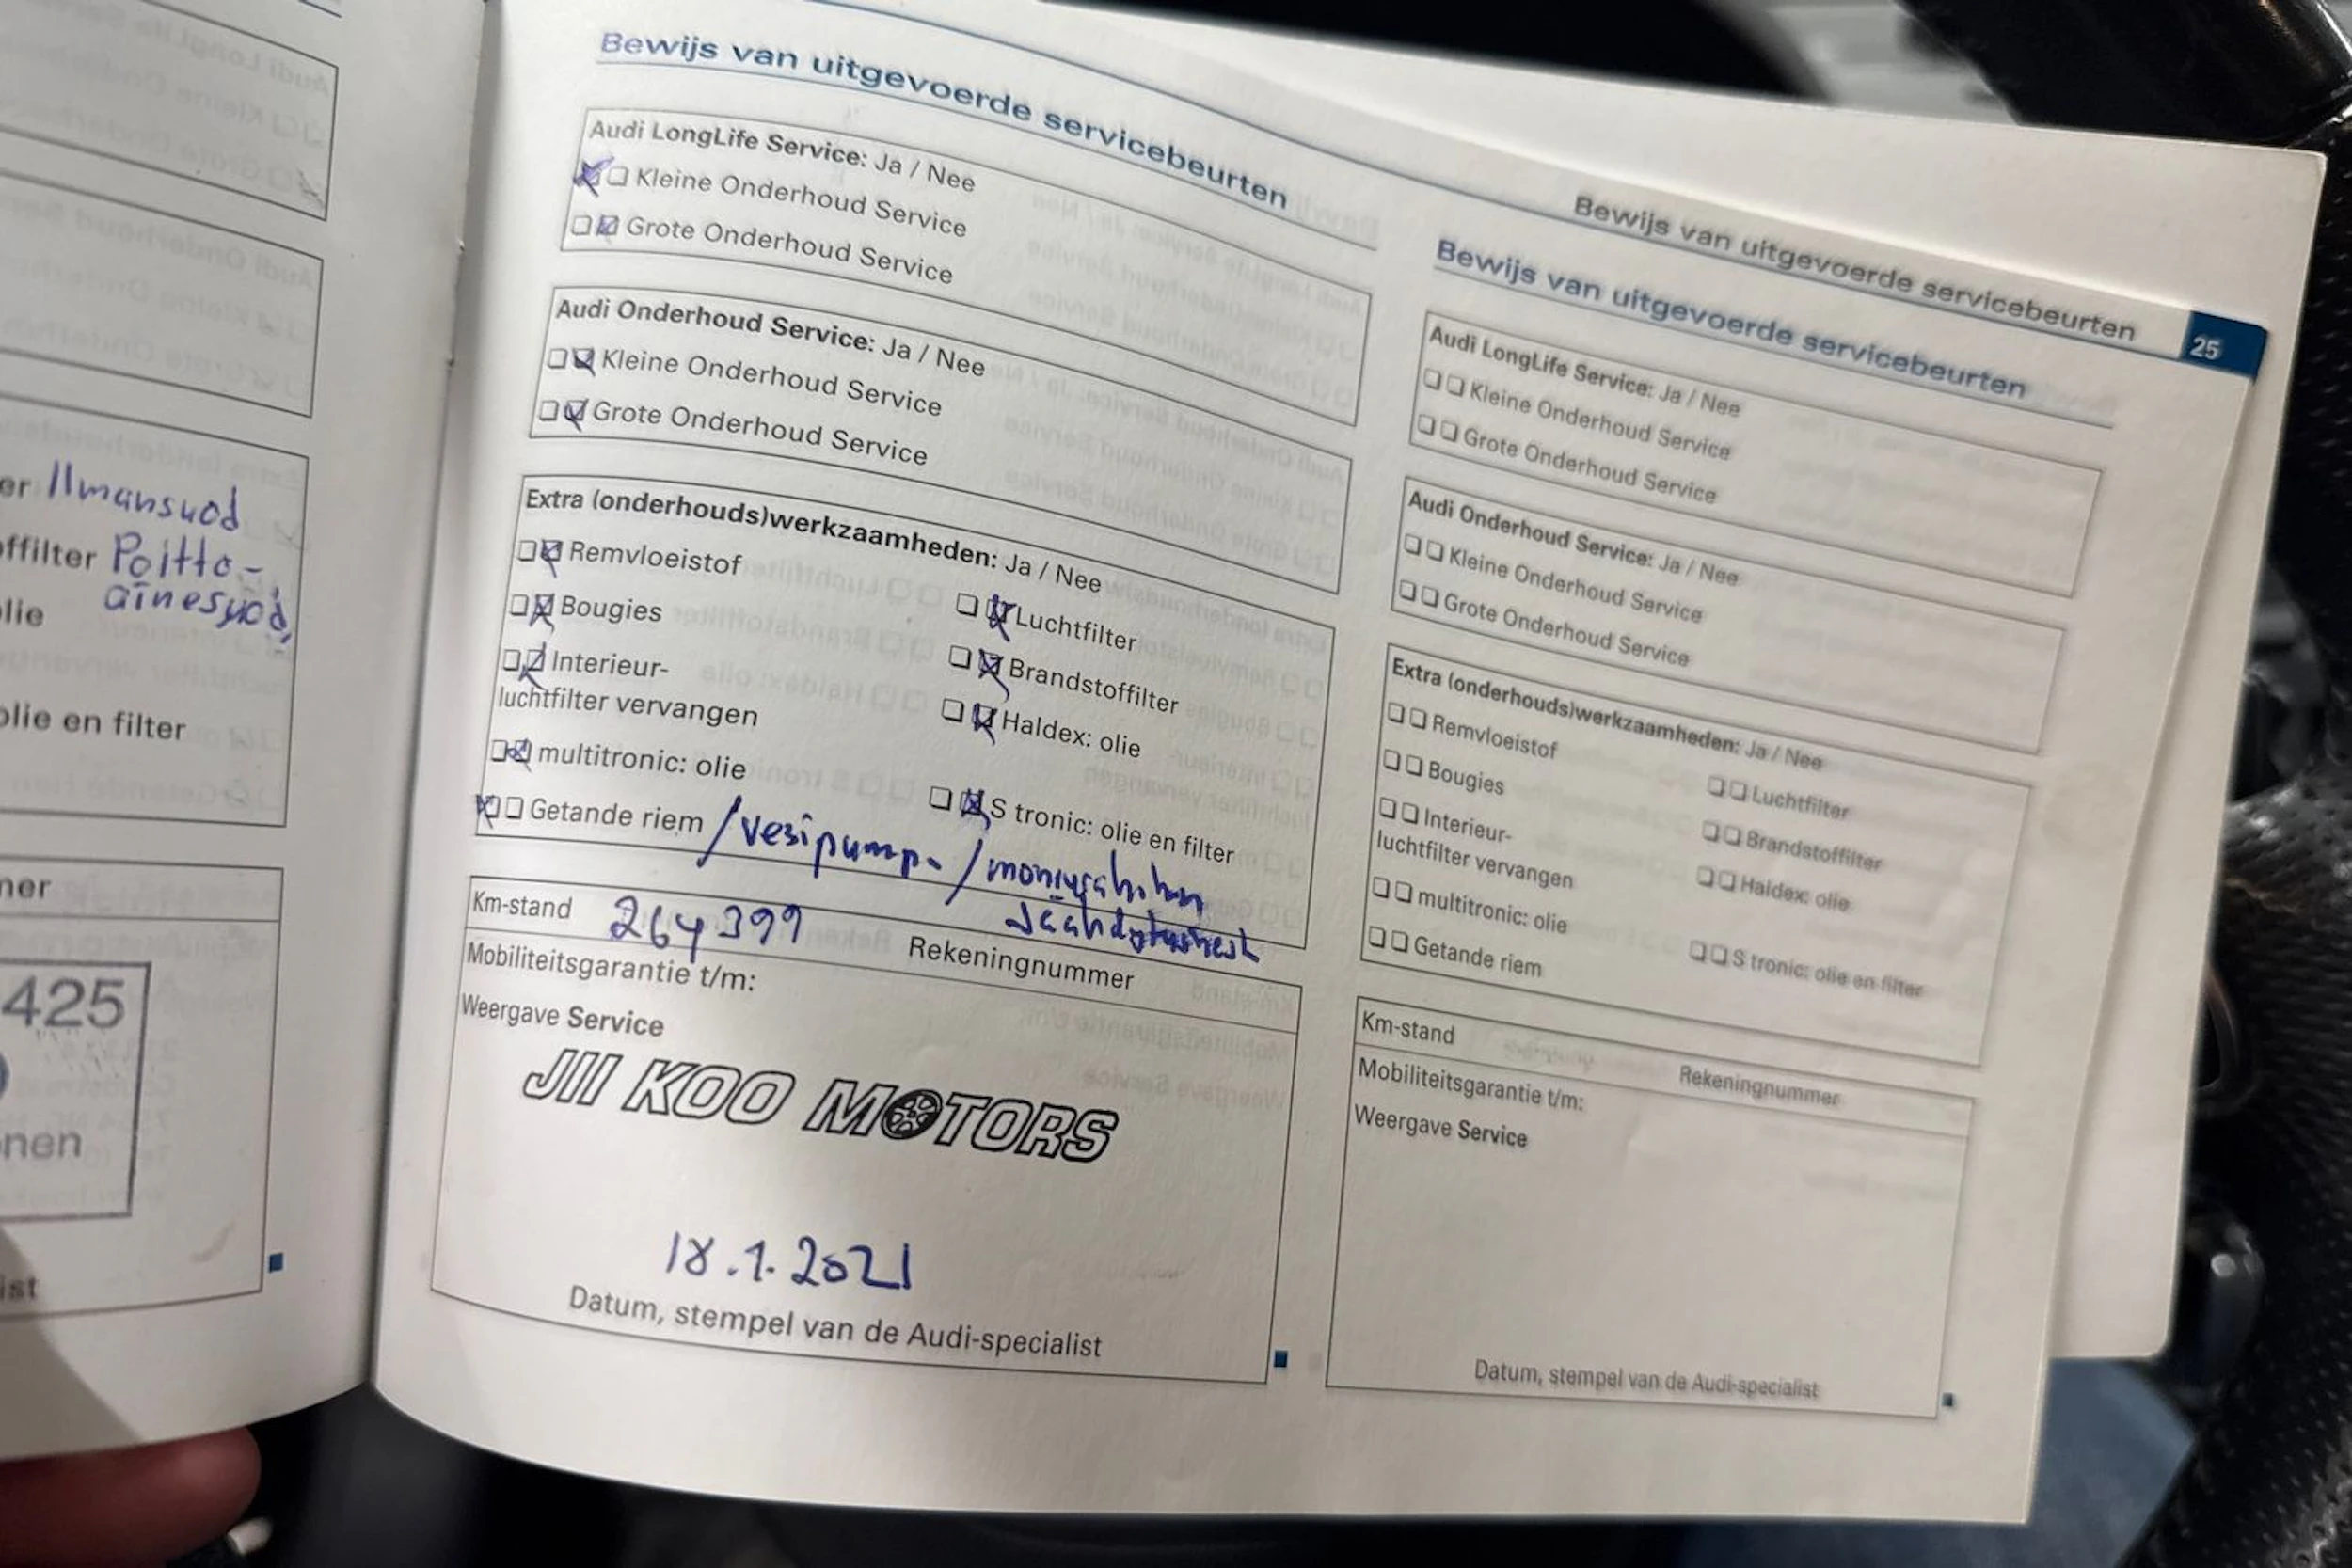 er Ilmansuod
offilter Poitto-
ainesuod,
lie
olie en filter
ner
425
nen
ist
Bewijs van uitgevoerde servicebeurten
Audi LongLife Service: Ja / Nee
Kleine Onderhoud Service
Grote Onderhoud Service
Audi Onderhoud Service: Ja / Nee
Kleine Onderhoud Service
Grote Onderhoud Service
Extra (onderhouds)werkzaamheden: Ja / Nee
Remvloeistof
Bougies
Interieur-
luchtfilter vervangen
multitronic: olie
Getande riem /vesipumpa /moniurahihna
Luchtfilter
Brandstoffilter
Haldex: olie
S tronic: olie en filter
Km-stand 264399
Rekeningnummer
Mobiliteitsgarantie t/m:
Weergave Service
JII KOO MOTORS
18.1.2021
Datum, stempel van de Audi-specialist
Bewijs van uitgevoerde servicebeurten 25
Bewijs van uitgevoerde servicebeurten
Audi LongLife Service: Ja / Nee
Kleine Onderhoud Service
Grote Onderhoud Service
Audi Onderhoud Service: Ja / Nee
Kleine Onderhoud Service
Grote Onderhoud Service
Extra (onderhouds)werkzaamheden: Ja / Nee
Remvloeistof
Bougies
Interieur-
luchtfilter vervangen
multitronic: olie
Getande riem
Luchtfilter
Brandstoffilter
Haldex: olie
S tronic: olie en filter
Km-stand
Rekeningnummer
Mobiliteitsgarantie t/m:
Weergave Service
Datum, stempel van de Audi-specialist